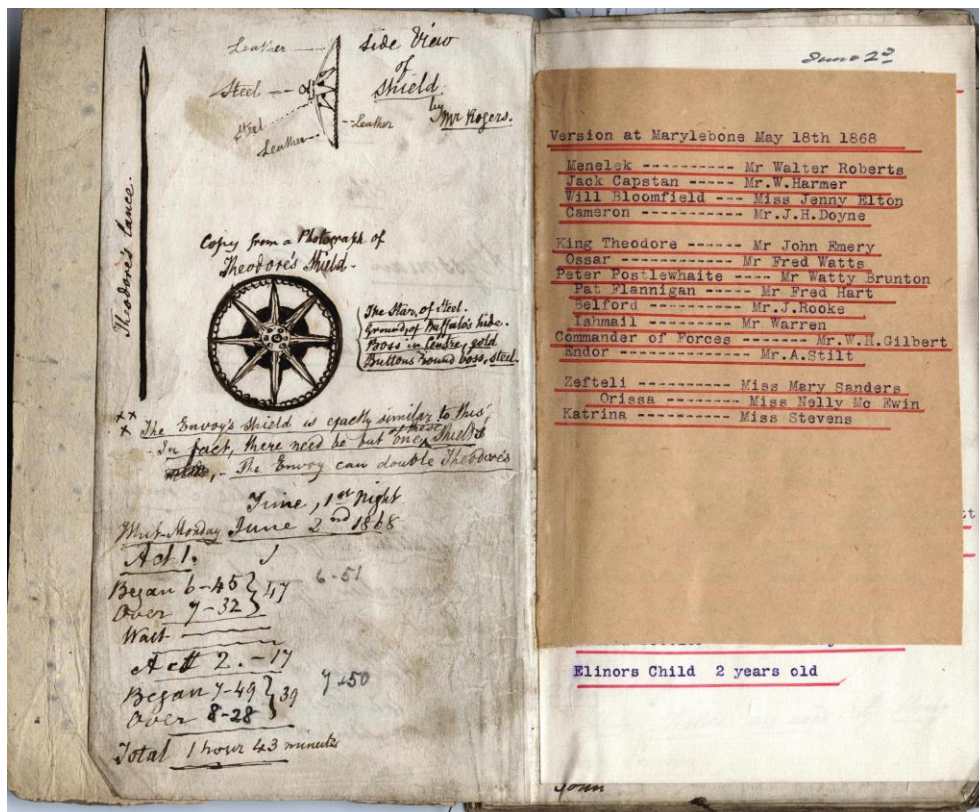 Leather
side View
of
shield.
by
Mr Rogers.
Steel
Steel
Leather
Leather
Theodore's Lance.
Copy from a Photograph of
Theodore's Shield.
The Star, of Steel.
Ground, of Buffalo's hide.
Boss in Centre, gold
Buttons round boss, steel.
The Envoy's shield is exactly similar to this,
In fact, there need be but one of these Shields
- The Envoy can double Theodore's
Time, 1st Night
Whit-Monday June 2nd 1868
Act 1.
Began 6-45 } 47
Over 7-32
6-51
Wait
Act 2. - 17
Began 7-49 } 39
Over 8-28
7-50
Total 1 hour 43 minutes
June 2nd
Version at Marylebone May 18th 1868
Menelek ---------- Mr Walter Roberts
Jack Capstan ----- Mr.W.Harmer
Will Bloomfield --- Miss Jenny Elton
Cameron ---------- Mr.J.H.Doyne
King Theodore ------ Mr John Emery
Ossar ------ Mr Fred Watts
Peter Postlewhaite ---- Mr Watty Brunton
Pat Flannigan ---- Mr Fred Hart
Belford ---- Mr.J.Rooke
Ishmail ---- Mr Warren
Commander of Forces ------- Mr.W.H.Gilbert
Endor ----------- Mr.A.Stilt
Zefteli ---------- Miss Mary Sanders
Orissa ------ Miss Nelly Mc Ewin
Katrina ------ Miss Stevens
Elinors Child 2 years old